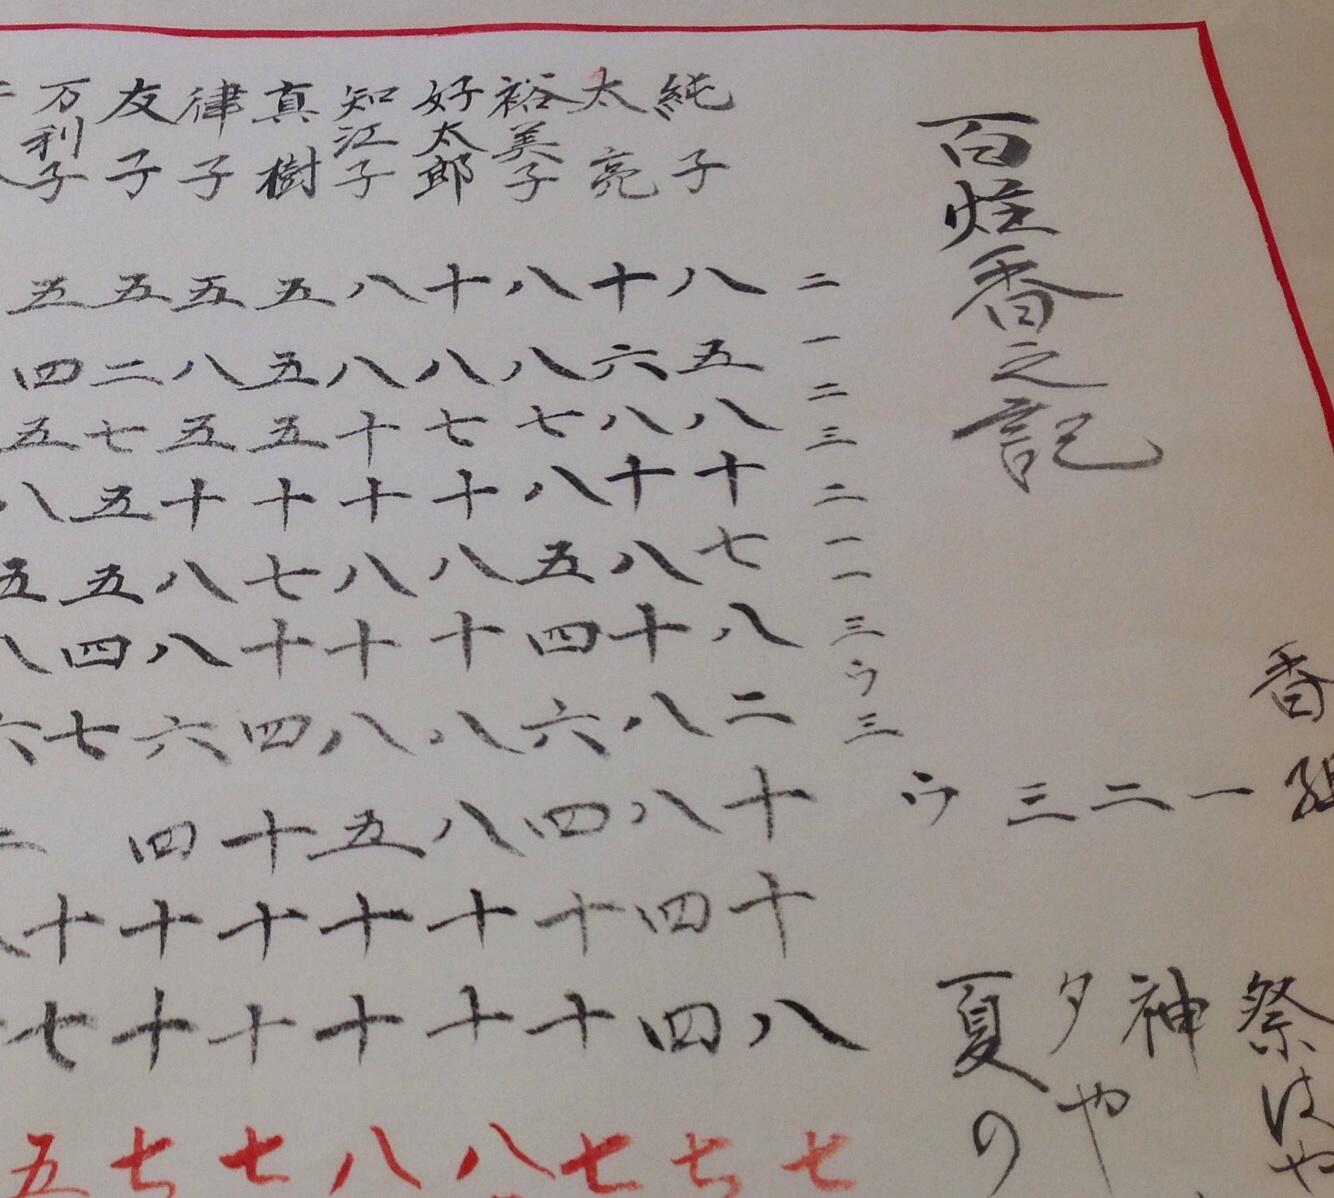 香組
一 祭はや
二 神
三 夕や
ウ 夏の
百炷香之記
二一二三二一一三ウ三
純子 八五八十七八二十十八 七
太亮 十六八十八十八八四四 七
裕美子 八八七八五四六四十十 七
好太郎 十八七十八十八八十十 八
知江子 八八十十八十八五十十 八
真樹 五五五十七十四十十十 七
律子 五八五十八八六四十十 七
友子 五二七五五四七 十七 五
万利子 五四五八五八六二